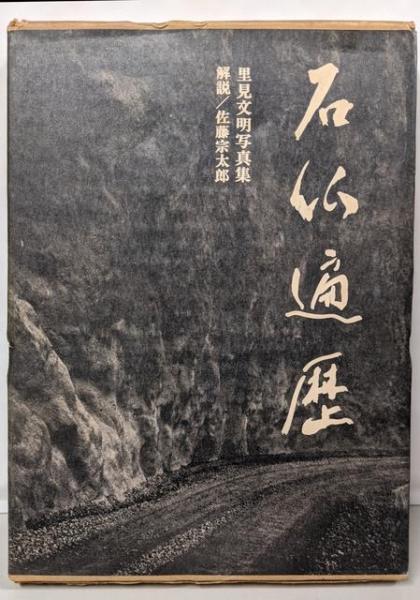 石仏遍歴
里見文明写真集
解説／佐藤宗太郎